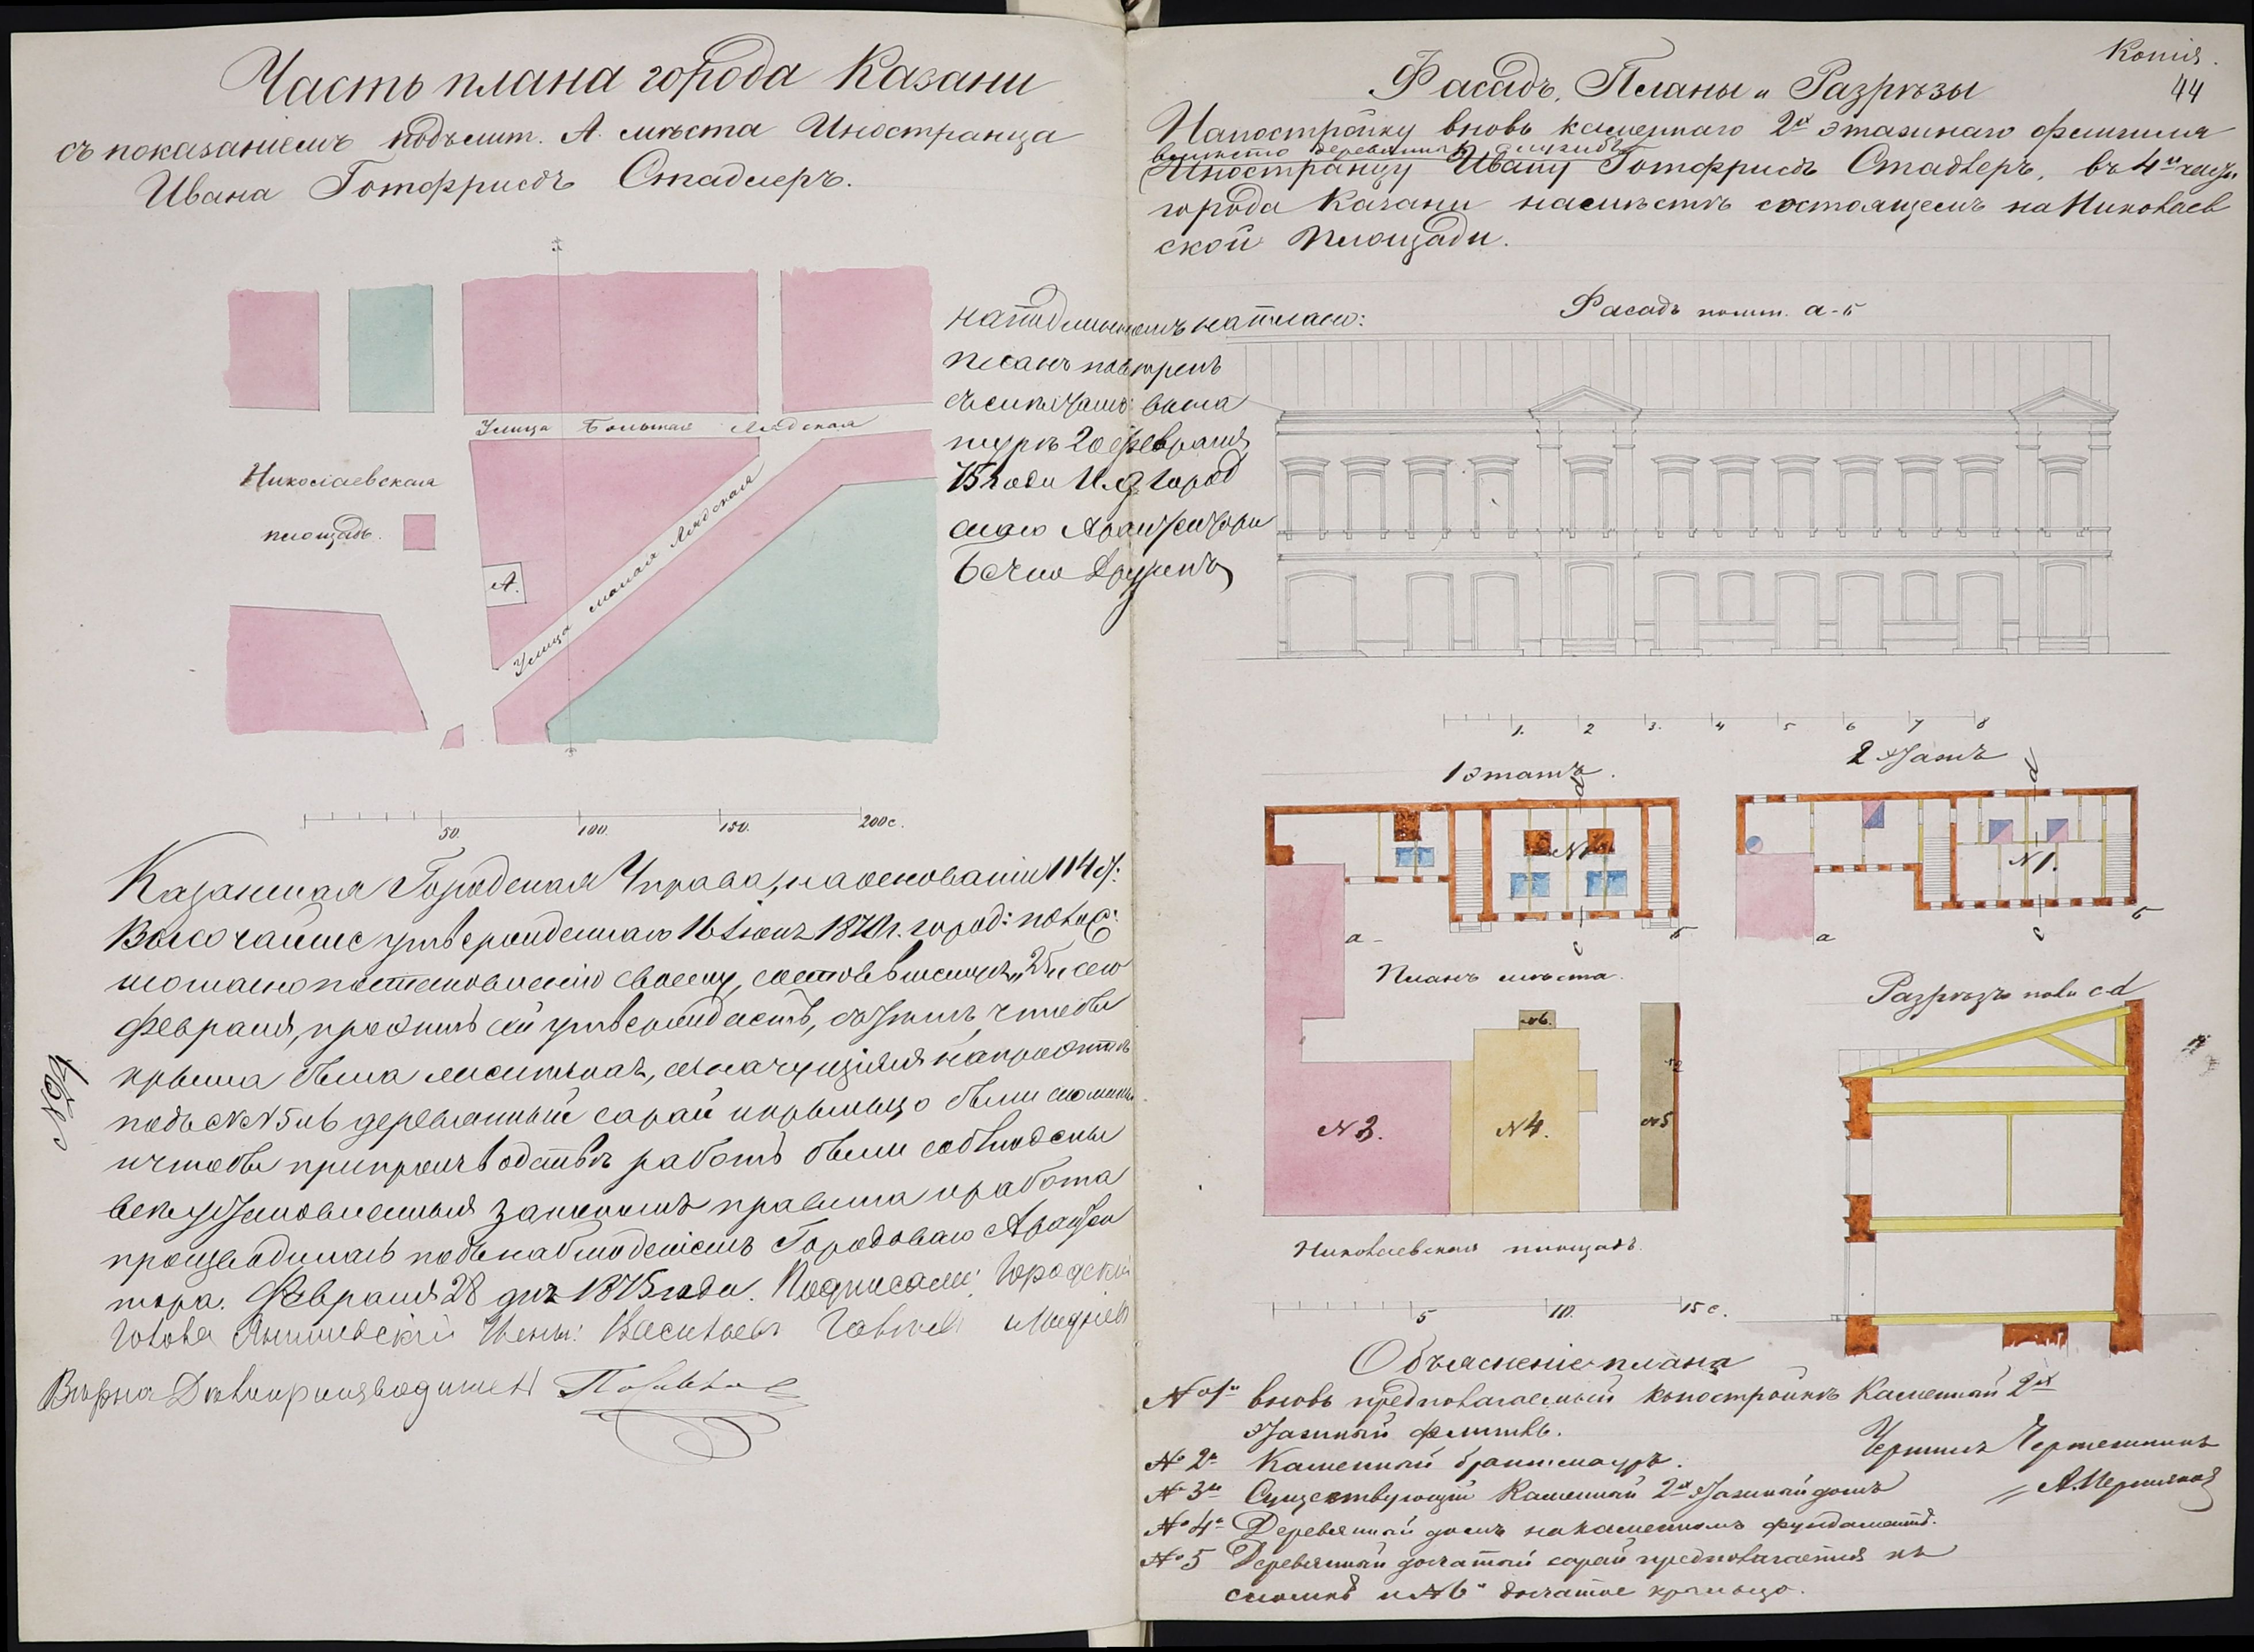 Часть плана города Казани
съ показаніемъ подъ лит. А. мѣста Иностранца
Ивана Готфридъ Стадлеръ.
Улица Большая Лядская
Николаевская
площадь.
А.
Улица малая Лядская
50. 100. 150. 200 с.
На подлинномъ написано:
смѣчаніе
турѣ 20 февраля
75 года
Казанская Городская Управа, на основаніи 114 ст:
Высочайше утвержденнаго 16 Іюня 1870 г. город: полож:
и согласно постановленію своему, состоявшемуся 25 сего
февраля, проэктъ сей утверждаетъ, съ тѣмъ, чтобы
крыша была желѣзная, значущіяся на проэктѣ
подъ №№ 5 и 6 деревянный сарай и крыльцо были сломаны
и чтобы при производствѣ работъ были соблюдены
всѣ установленныя закономъ правила и работа
производилась подъ наблюденіемъ Городоваго Архитек
тора. Февраля 28 дня 1875 года. Подписали: Городской
Голова Янишевскій Члены: Васильевъ
Вѣрно Дѣлопроизводитель
№ 24
Копія.
44
Фасадъ, Планы и Разрѣзы
На постройку вновь каменнаго 2х этажнаго флигиля
вмѣсто деревянныхъ службъ
Иностранцу Ивану Готфридъ Стадлеръ, въ 4й части
города Казани на мѣстѣ состоящемъ на Николаев
ской площади.
Фасадъ по лит. а-б
1. 2 3. 4 5 6 7 8
1 этажъ.
2 Этажъ
d
d
№ 1
№ 1.
а
б
с
а
б
с
Планъ мѣста.
Разрѣзъ по ли c-d
№ 6.
№ 2
№ 3.
№ 4.
№ 5
Николаевская площадь.
5 10. 15 с.
Объясненіе плана
№ 1й вновь предполагаемый къ постройкѣ каменный 2хъ
этажный флигиль.
№ 2й Каменный брантмауръ.
№ 3й Существующій Каменный 2хъ этажный домъ
№ 4й Деревянный домъ на каменномъ фундаментѣ.
№ 5 Деревянный досчатый сарай предполагается къ
сломкѣ и № 6й досчатое крыльцо.
Чертилъ Чертежникъ